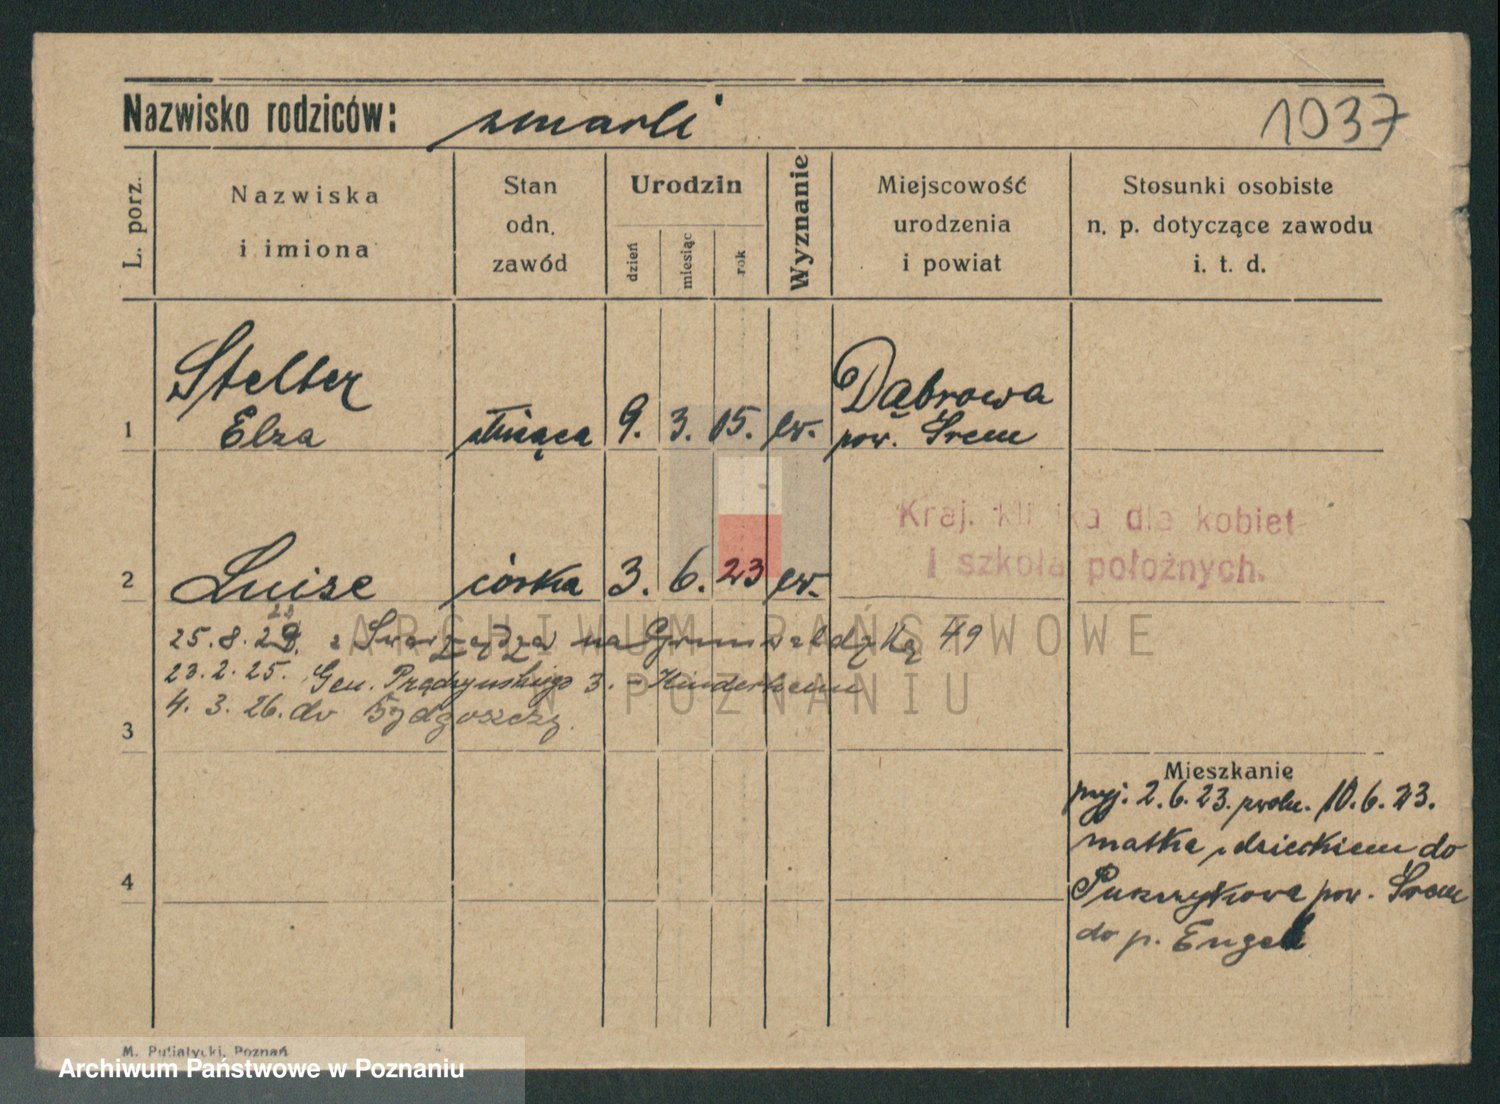 Nazwisko rodziców: zmarli
1037
L. porz.
Nazwiska
i imiona
Stan
odn.
zawód
Urodzin
dzień
miesiąc
rok
Wyznanie
Miejscowość
urodzenia
i powiat
Stosunki osobiste
n. p. dotyczące zawodu
i. t. d.
Stelter
1 Elza służąca 9. 3. 05. ew. Dąbrowa
pow. Śrem
Kraj. klinika dla kobiet
i szkoła położnych.
2 Luise córka 3. 6. 23 ew.
25. 8. z Swarzędza na Grunwaldzką 49
23. 2. 25. Gen. Prądzyńskiego 3. - Kinderheim
4. 3. 26. do Bydgoszczy.
3
Mieszkanie
przyj. 2. 6. 23. zwoln. 10. 6. 23.
matka z dzieckiem do
pow. Śrem
do p. Engel
4
M. Putiatycki, Poznań
ARCHIWUM PAŃSTWOWE
W POZNANIU
Archiwum Państwowe w Poznaniu